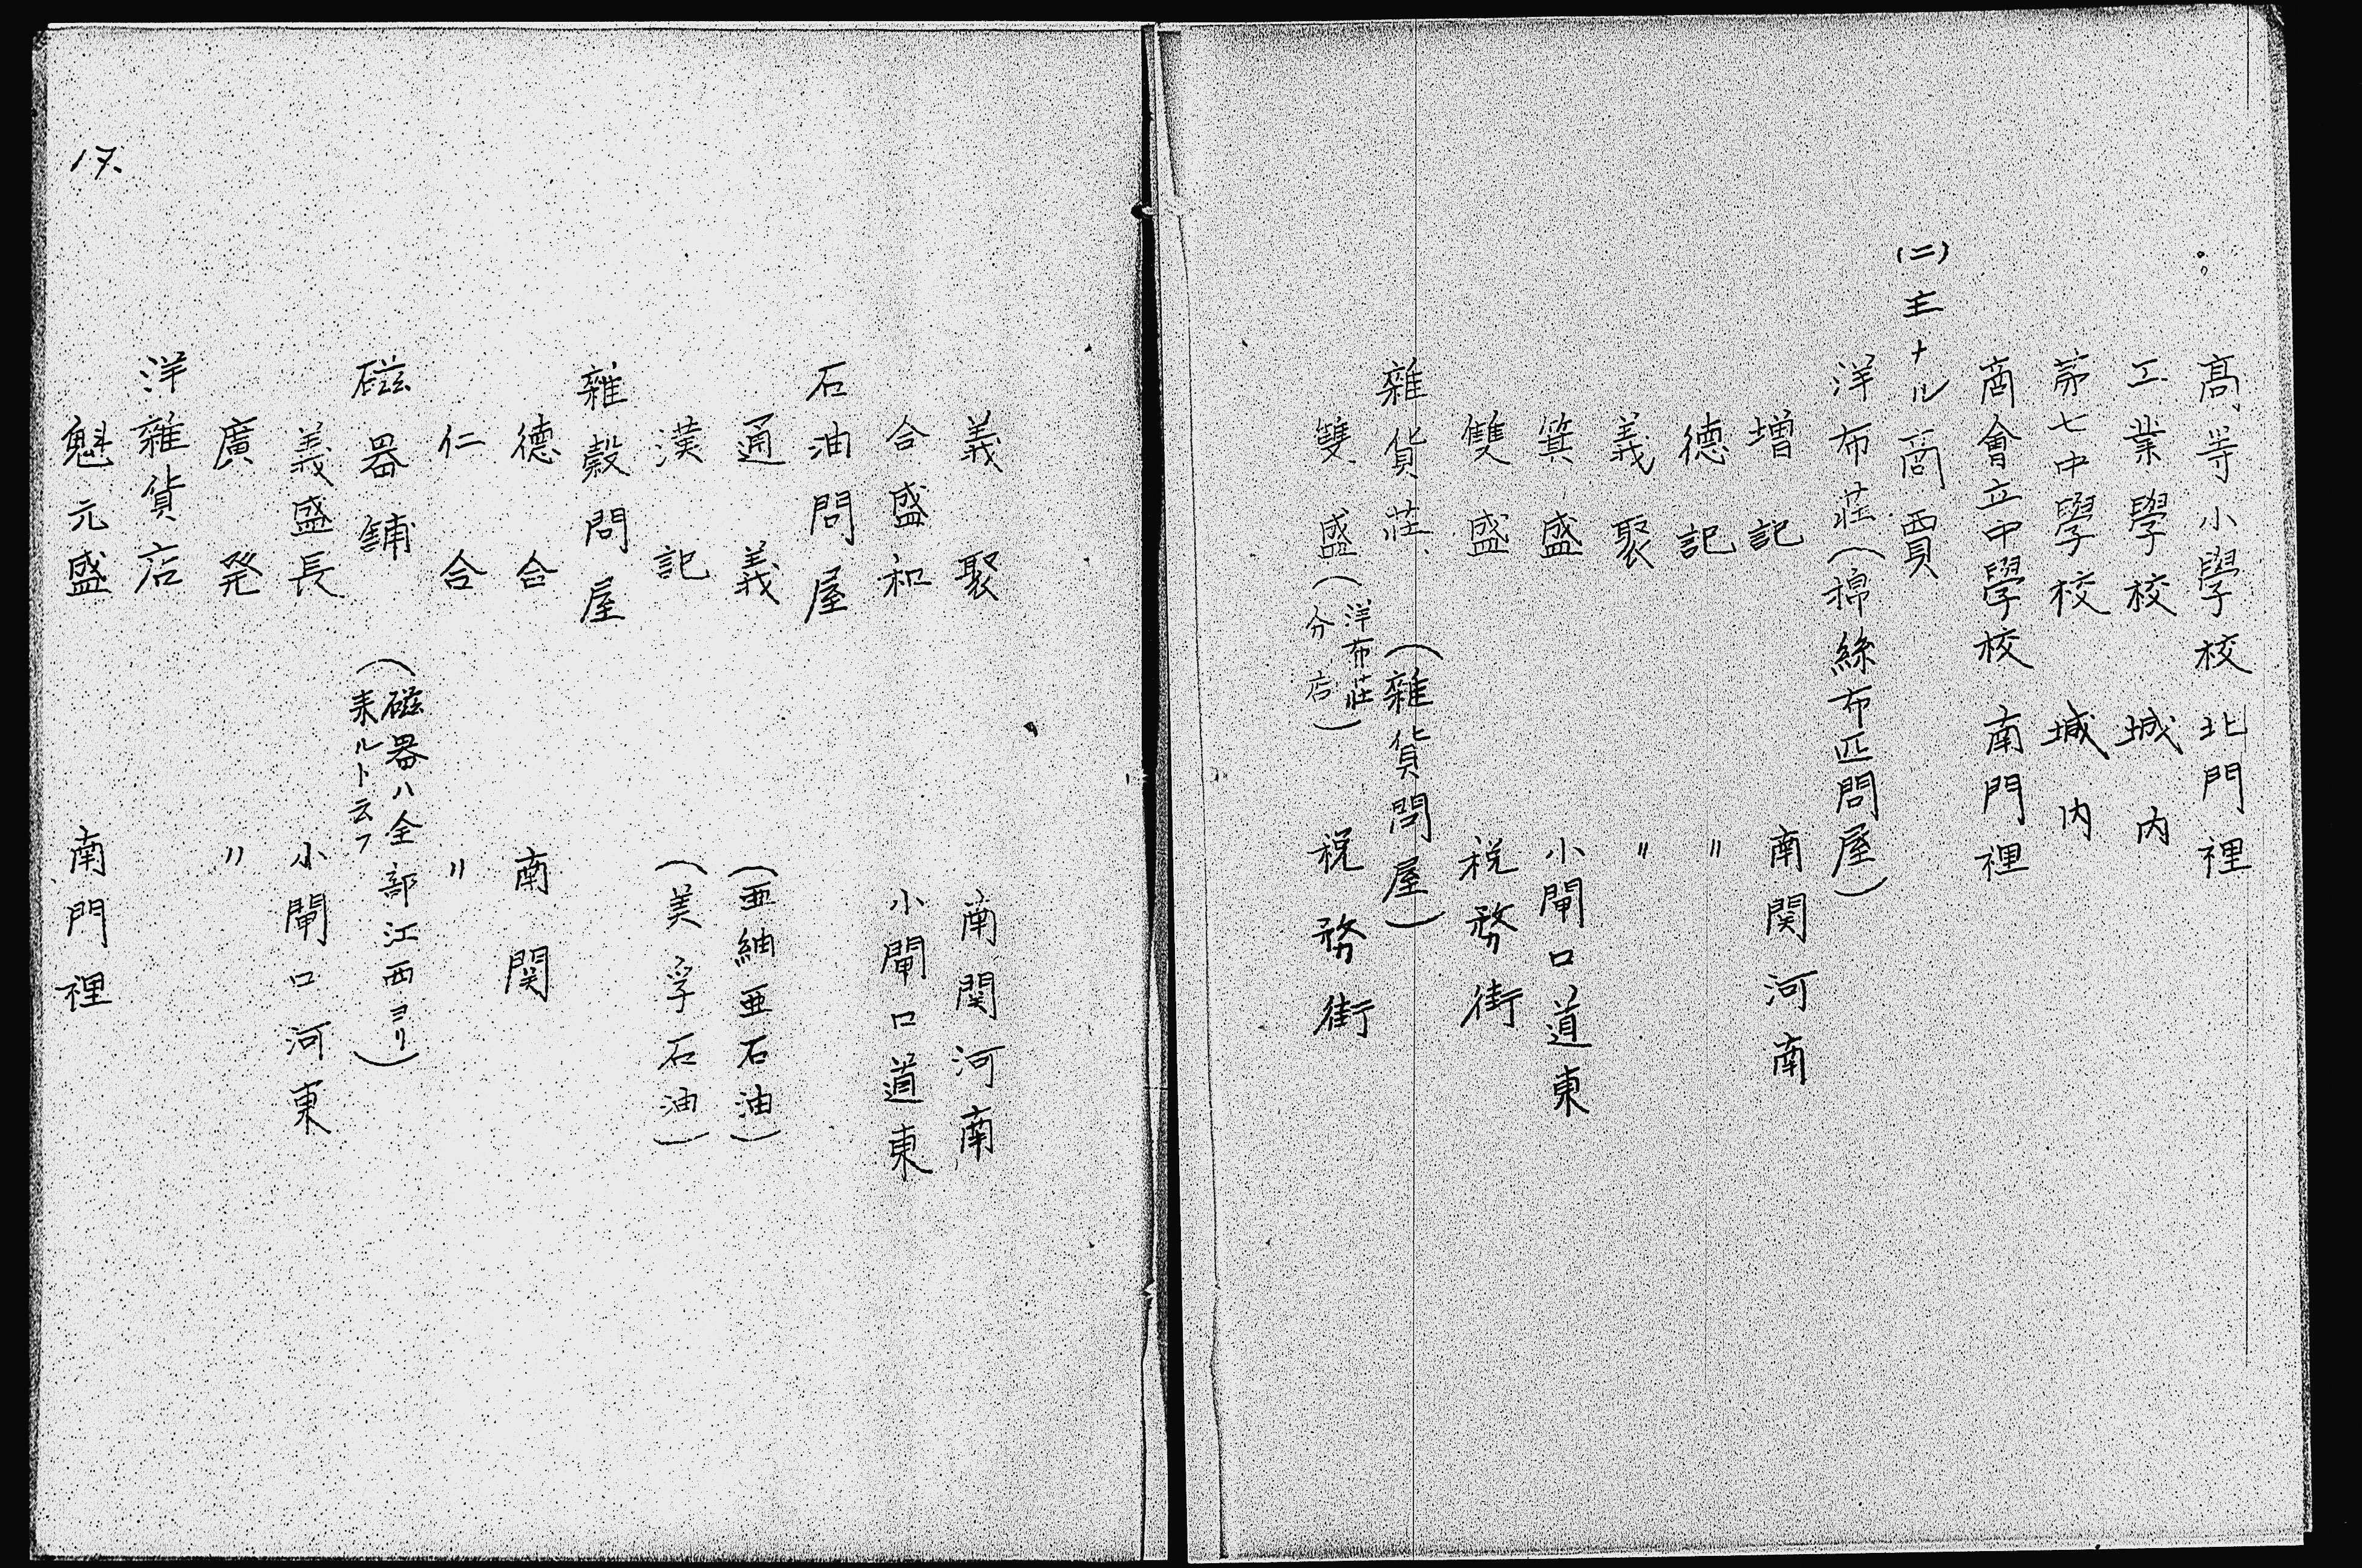 高等小學校 北門裡
工業學校 城内
第七中學校 城内
商會立中學校 南門裡
(二)主ナル商賈
洋布莊(棉絲布匹問屋)
增記 南関河南
德記 〃
義聚 〃
箕盛 小閘口道東
雙盛 税務街
雜貨莊(雜貨問屋)
雙盛(洋布莊分店) 税務街
義聚 南関河南
合盛和 小閘口道東
石油問屋
通義 (亜紬亜石油)
漢記 (美孚石油)
雜穀問屋
德合 南関
仁合 〃
磁器舗 (磁器ハ全部江西ヨリ
来ルト云フ)
義盛長 小閘口河東
廣発 〃
洋雜貨店
魁元盛 南門裡
17.